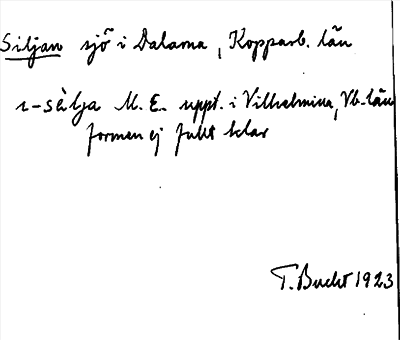 Siljan sjö i Dalarna, Kopparb. län
ı-sèlja M. E. uppt. i Vilhelmina, Vb. län
formen ej fullt klar
T. Bucht 1923